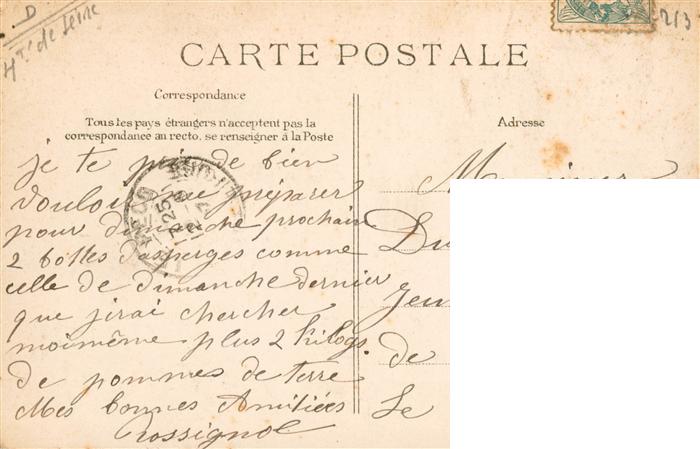 D
Hts de Seine
213
CARTE POSTALE
Correspondance
Tous les pays étrangers n'acceptent pas la
correspondance au recto, se renseigner à la Poste
Adresse
je te prie de bien
vouloir me préparer
pour dimanche prochain
2 bottes d'asperges comme
celle de dimanche dernier
que jirai chercher
moimême plus 2 kilogs.
de pommes de terre
Mes bonnes Amitiées
Rossignol
Monsieur
Du
de
Le